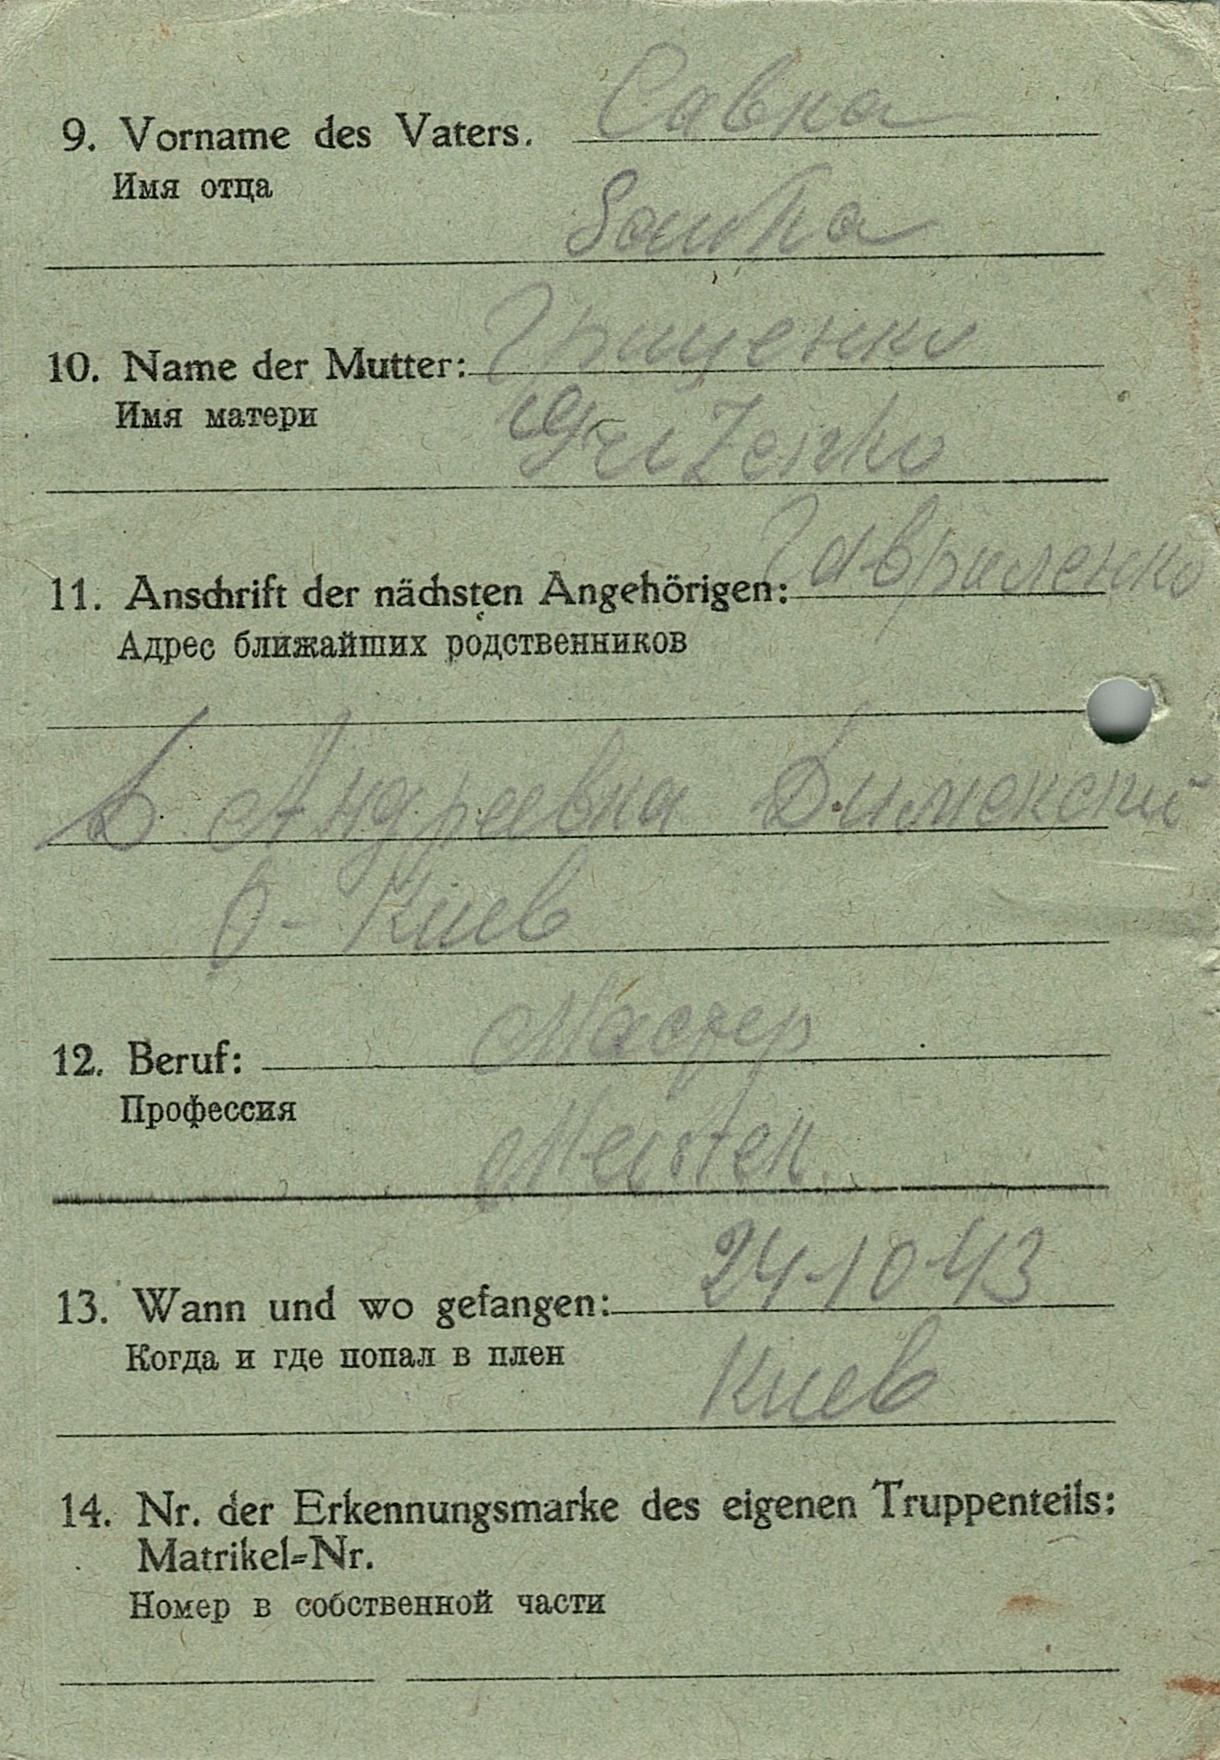 9. Vorname des Vaters. Савка
Имя отца
Sawka
10. Name der Mutter: Гриценко
Имя матери
Grizenko
11. Anschrift der nächsten Angehörigen: Гавриленко
Адрес ближайших родственников
Андреевна Димекский
Киев
12. Beruf: Мастер
Профессия
Meister
13. Wann und wo gefangen: 24-10-43
Когда и где попал в плен
Киев
14. Nr. der Erkennungsmarke des eigenen Truppenteils:
Matrikel=Nr.
Номер в собственной части